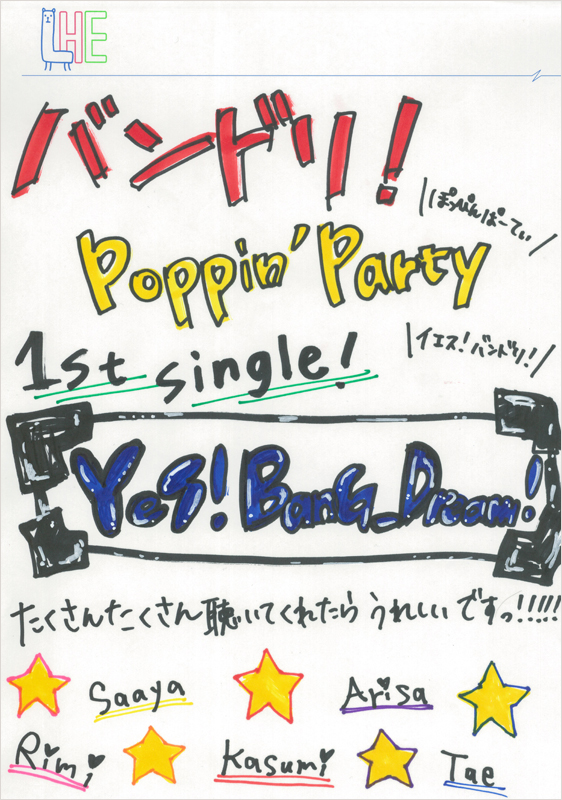 LHE
バンドリ!
\ぽっぴんぱーてぃ/
Poppin' Party
1st single!
\イエス!バンドリ!/
Yes! BanG_Dream!
たくさんたくさん聴いてくれたらうれしいですっ!!!!!
Saaya
Arisa
Rimi
Kasumi
Tae